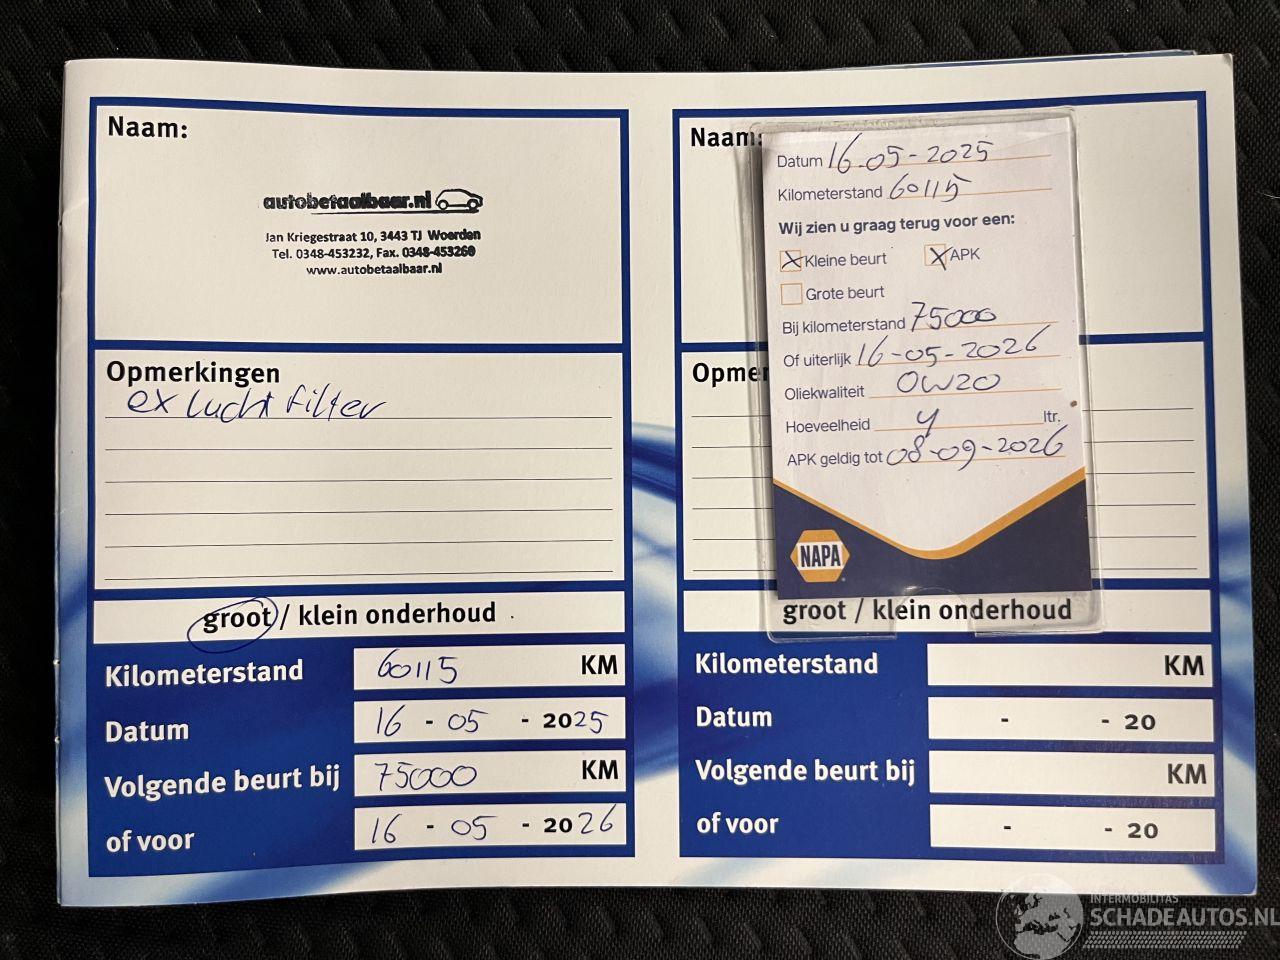 Naam:
autobetaalbaar.nl
Jan Kriegestraat 10, 3443 TJ Woerden
Tel. 0348-453232, Fax. 0348-453260
www.autobetaalbaar.nl
Opmerkingen
ex lucht filter
groot / klein onderhoud
Kilometerstand 60115 KM
Datum 16 - 05 - 2025
Volgende beurt bij 75000 KM
of voor 16 - 05 - 2026
Naam:
Datum 16-05-2025
Kilometerstand 60115
Wij zien u graag terug voor een:
X Kleine beurt X APK
Grote beurt
Bij kilometerstand 75000
Of uiterlijk 16-05-2026
Oliekwaliteit 0W20
Hoeveelheid 4 ltr.
APK geldig tot 08-09-2026
NAPA
Opme
groot / klein onderhoud
Kilometerstand KM
Datum - - 20
Volgende beurt bij KM
of voor - - 20
INTERMOBILITAS
SCHADEAUTOS.NL